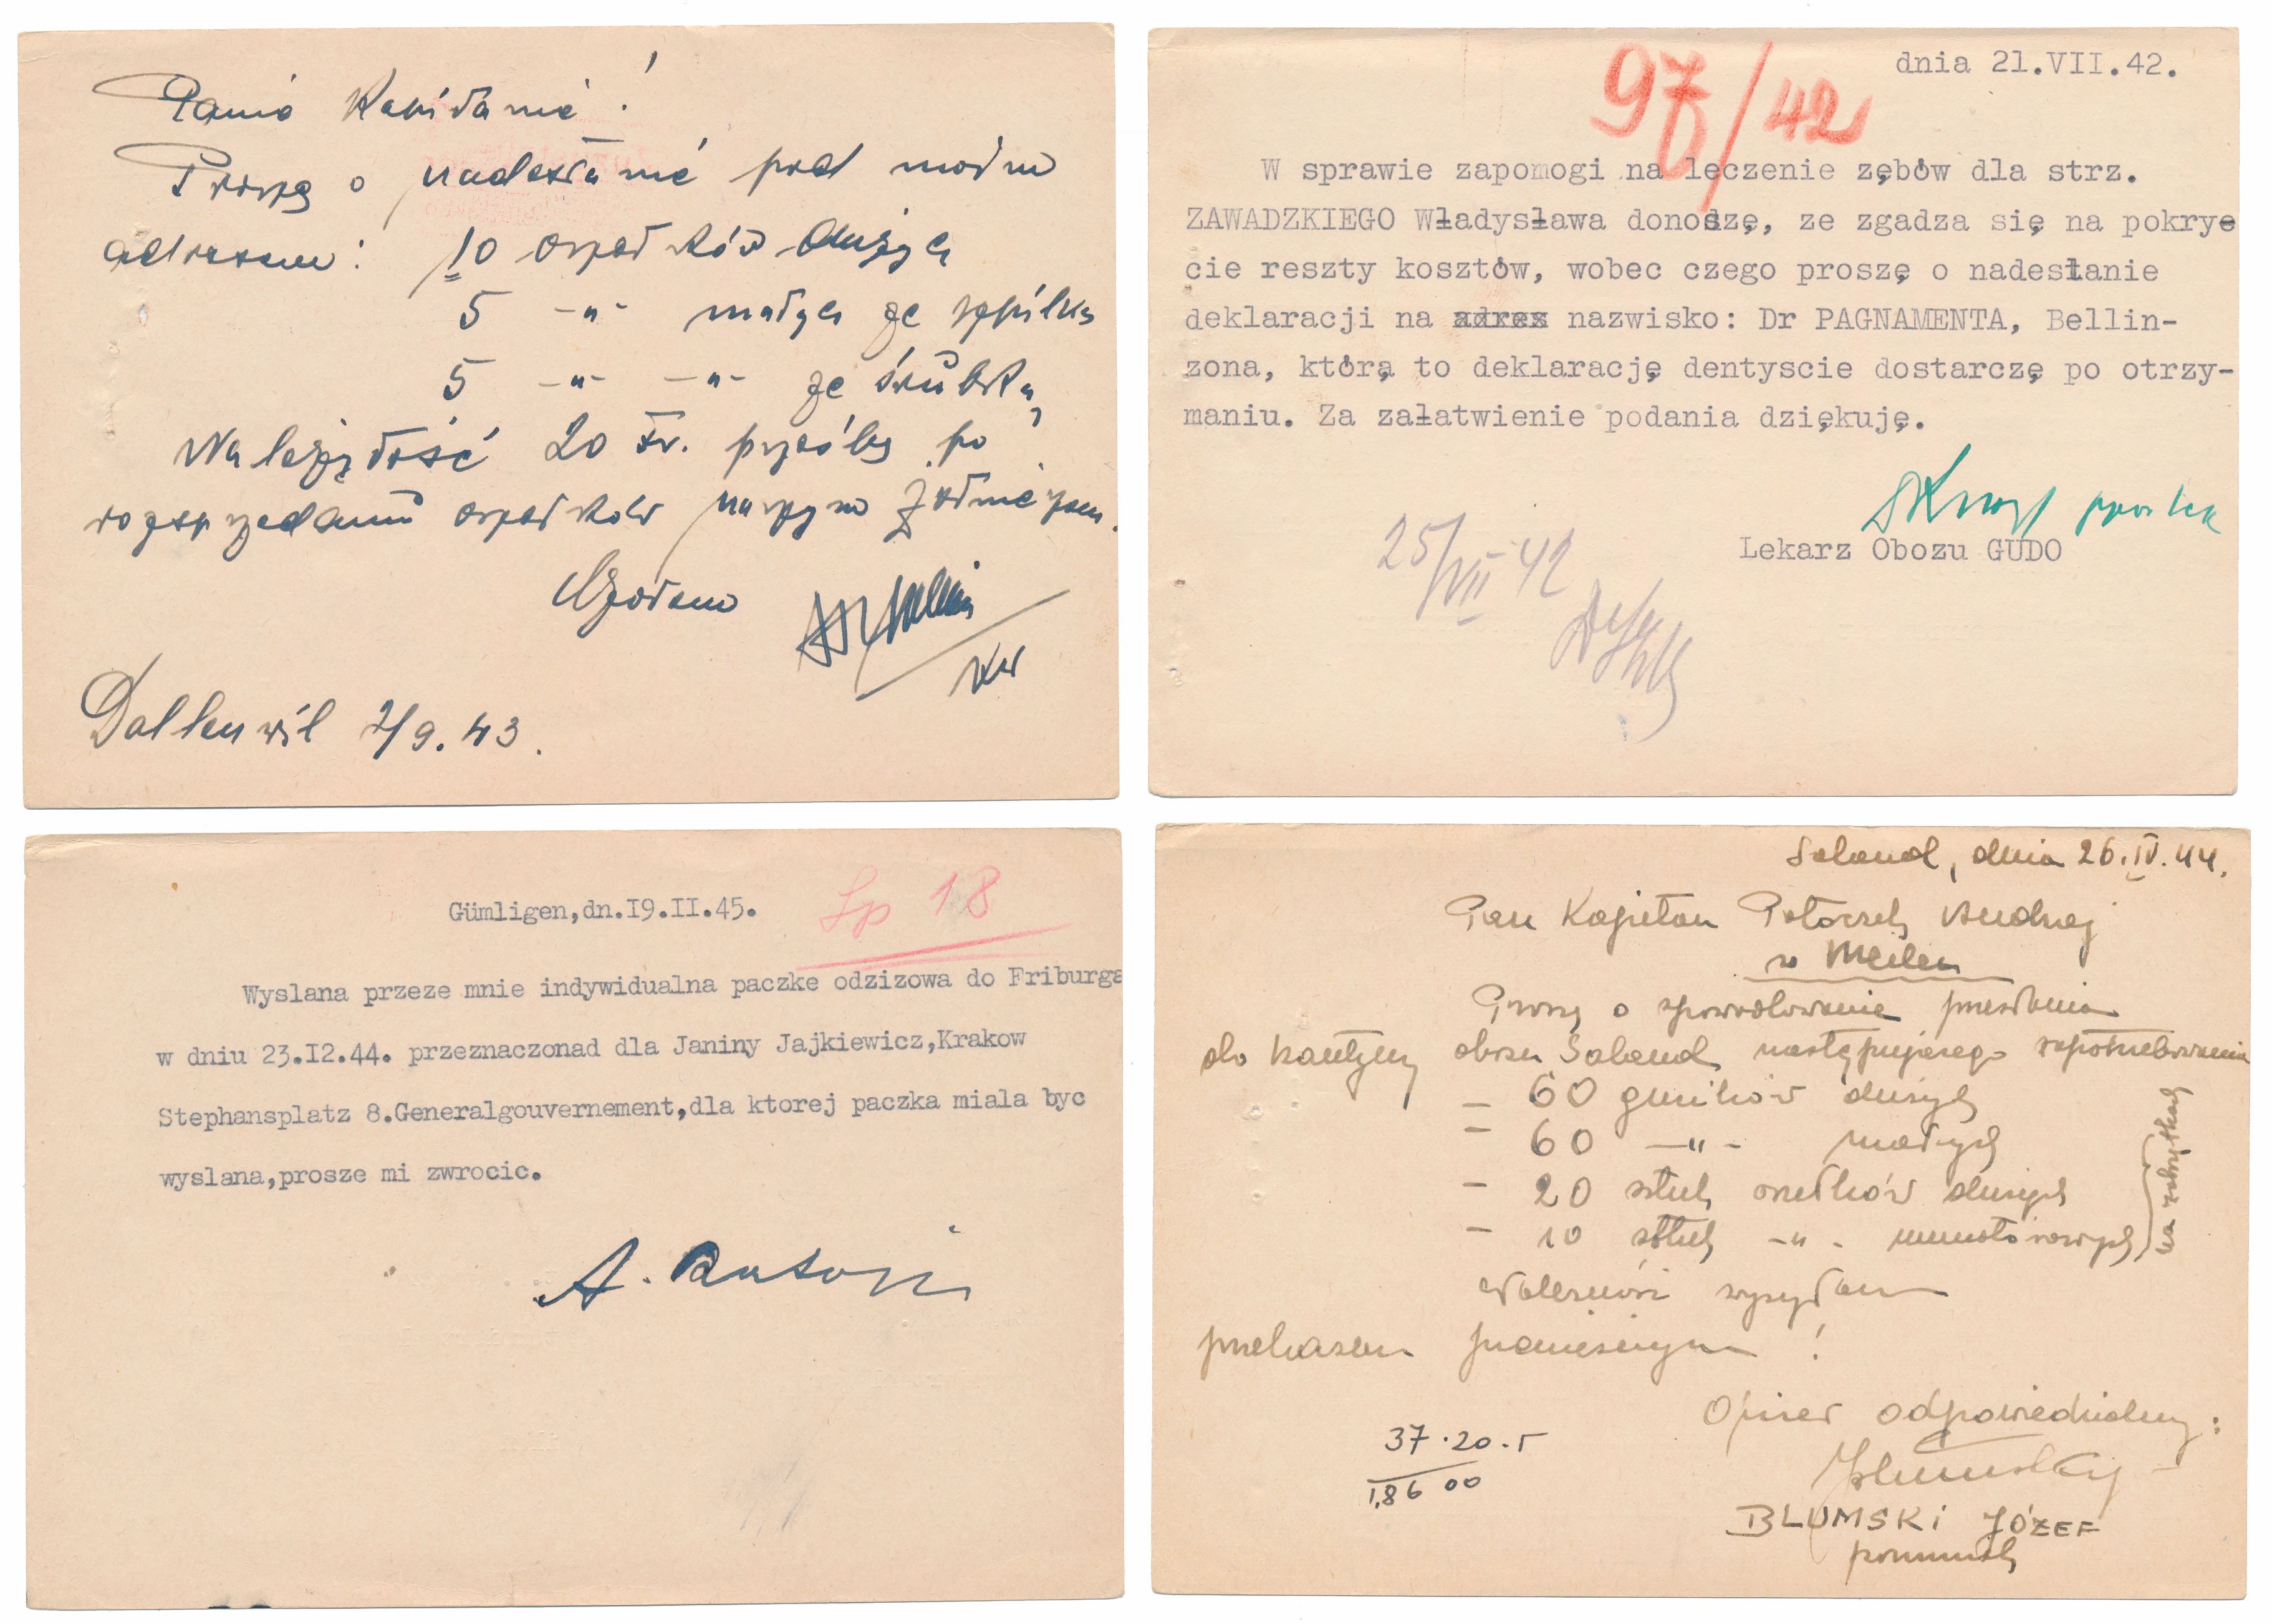 Panie Kapitanie!
Proszę o nadesłanie pod moim
adresem: 10 orzełków dużych
5 -"- małych ze szpilką
5 -"- -"- ze śrubką
Należytość 20 Fr. prześlę po
rozsprzedaniu orzełków naszym żołnierzom.
Czołem
Dallenwil 2/9.43.
97/42
dnia 21.VII.42.
W sprawie zapomogi na leczenie zębów dla strz.
ZAWADZKIEGO Władysława donoszę, ze zgadza się na pokry-
cie reszty kosztów, wobec czego proszę o nadesłanie
deklaracji na adres nazwisko: Dr PAGNAMENTA, Bellin-
zona, którą to deklarację dentyscie dostarczę po otrzy-
maniu. Za załatwienie podania dziękuję.
Lekarz Obozu GUDO
25/VII 42
Gümligen,dn.I9.II.45.
Lp 18
Wyslana przeze mnie indywidualna paczke odzizowa do Friburga
w dniu 23.I2.44. przeznaczonad dla Janiny Jajkiewicz,Krakow
Stephansplatz 8.Generalgouvernement,dla ktorej paczka miala byc
wyslana,prosze mi zwrocic.
Saland, dnia 26.IV.44.
Pan Kapitan Andrzej
w Meilen
Proszę o spowodowanie przesłania
do kantyny obozu Saland następującego zapotrzebowania
- 60 guzików dużych
- 60 -"- małych
- 20 sztuk orzełków dużych
- 10 sztuk -"-
Należność wysyłam
przekazem pieniężnym!
Oficer odpowiedzialny:
37.20.5
1,86 00
BLUMSKI JÓZEF